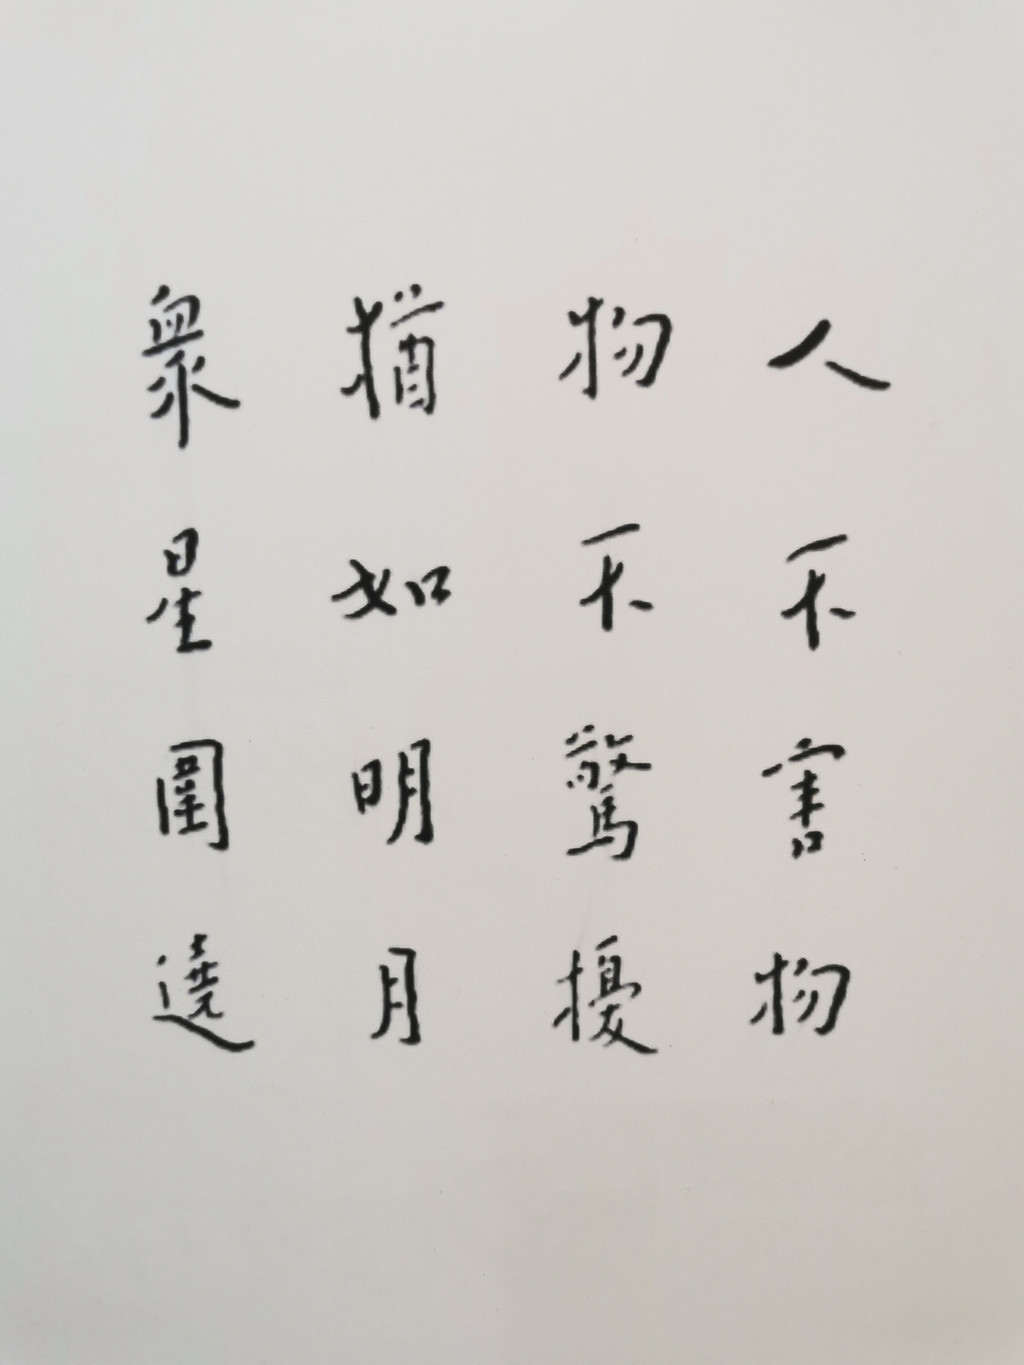 人不害物
物不驚擾
猶如明月
眾星圍遶